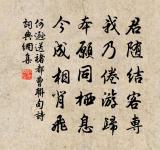 君隨結客去
我乃倦游歸
本願同栖息
今成相背飛
何遜送褚都曹聯句詩
詞典網集